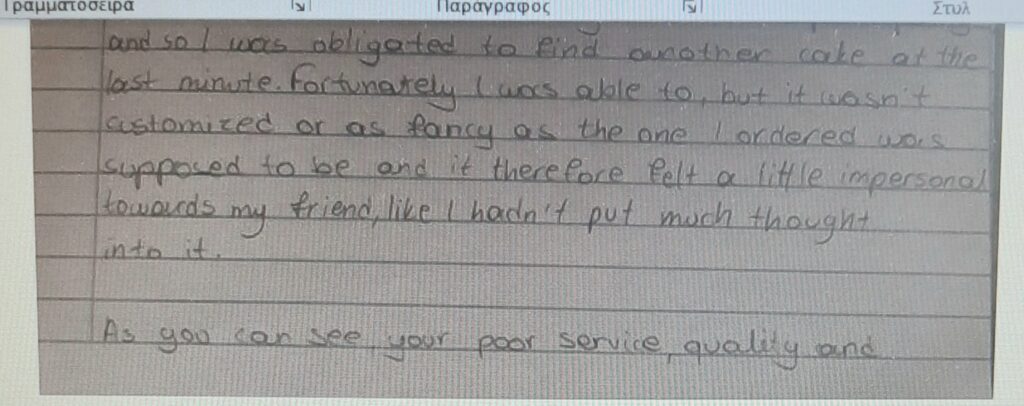 Γραμματοσειρά Παράγραφος Στυλ
and so I was obligated to find another cake at the
last minute. Fortunately I was able to, but it wasn't
customized or as fancy as the one I ordered was
supposed to be and it therefore felt a little impersonal
towards my friend, like I hadn't put much thought
into it.
As you can see, your poor service, quality and